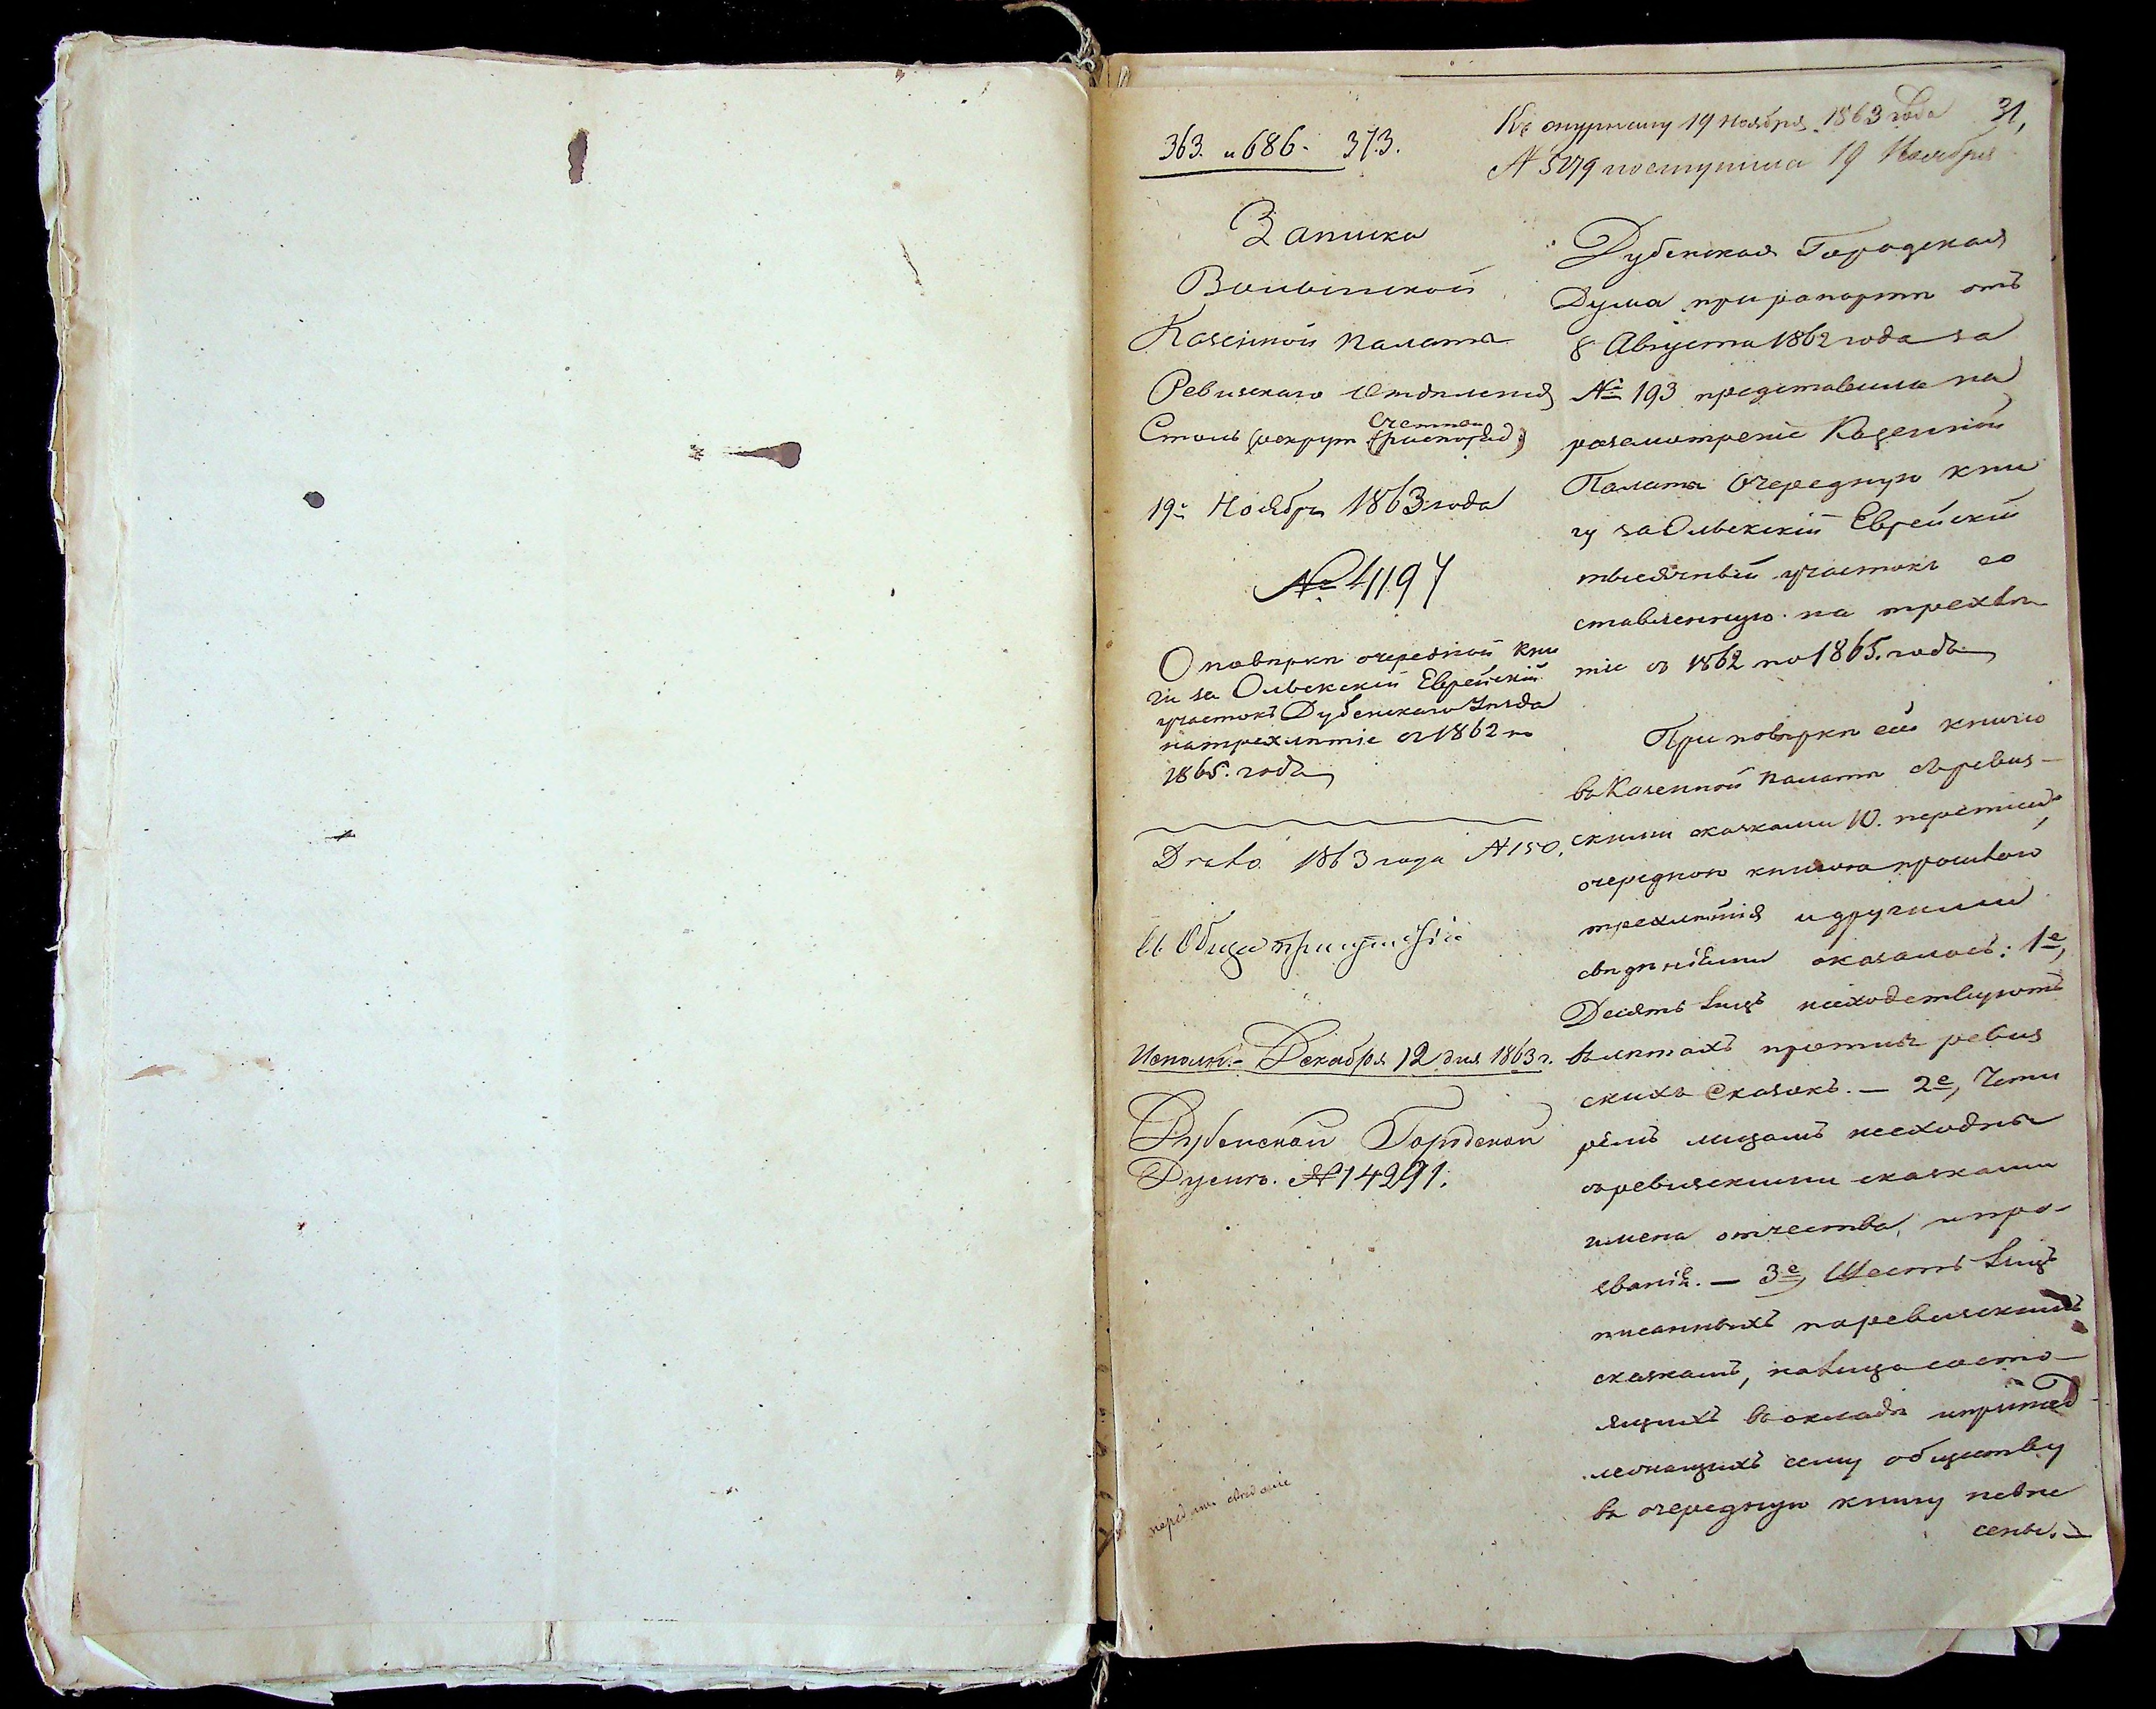 363. и 686. 373.
Къ журналу 19 Ноября 1863 года 31,
поступила 19 Ноября
Записка
Волынской
Казенной Палаты
Ревизскаго Отдѣленія
Столъ (рекрут Счетнаго
19го Ноября 1863 года
№ 4197
О повѣркѣ очередной кни
ги за Олыкскій Еврейскій
участокъ Дубенскаго Уѣзда
на трехлѣтіе съ 1862 по
1865. годъ
Дѣло 1863 года № 150.
Въ Общее Присутствіе
Исполн. Декабря 12 дня 1863 г.
Дубенской Городской
Думѣ. № 14291.
Дубенская Городская
Дума при рапортѣ отъ
8 Августа 1862 года за
№ 193 представила на
разсмотреніе Казенной
Палаты очередную кни
гу за Олыкскій Еврейскій
тысячный участокъ со
ставленную на трехлѣ
тіе съ 1862 по 1865. годъ
При повѣркѣ сей книги
въ Казенной Палатѣ съ ревиз-
скими сказками 10. переписи,
очередною книгою прошлаго
трехлѣтія и другими
свѣдѣніями оказалось: 1е,
Десять лицъ несходствуютъ
въ лѣтахъ противъ ревиз
скихъ сказокъ. — 2е, Четы
рёмъ лицамъ несходны
съ ревизскими сказками
имена отчества, и про-
званія. — 3е, Шесть лицъ
писанныхъ по ревизскимъ
сказкамъ, на лицо состо-
ящихъ въ окладѣ и принад-
лежащихъ сему обществу
въ очередную книгу невне
сены. —